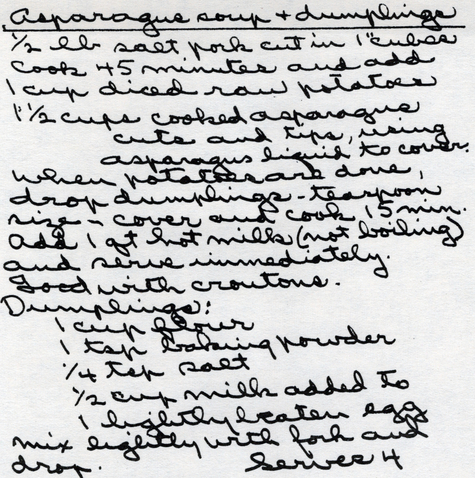 Asparagus soup + dumplings
1/2 lb salt pork cut in 1" cubes
Cook 45 minutes and add
1 cup diced raw potatoes
1 1/2 cups cooked asparagus
cuts and tips, using
asparagus liquid to cover.
When potatoes are done,
drop dumplings - teaspoon
size - cover and cook 15 min.
Add 1 qt hot milk (not boiling)
and serve immediately.
Good with croutons.
Dumplings:
1 cup flour
1 tsp baking powder
1/4 tsp salt
1/2 cup milk added to
1 lightly beaten egg
mix lightly with fork and
drop. Serves 4